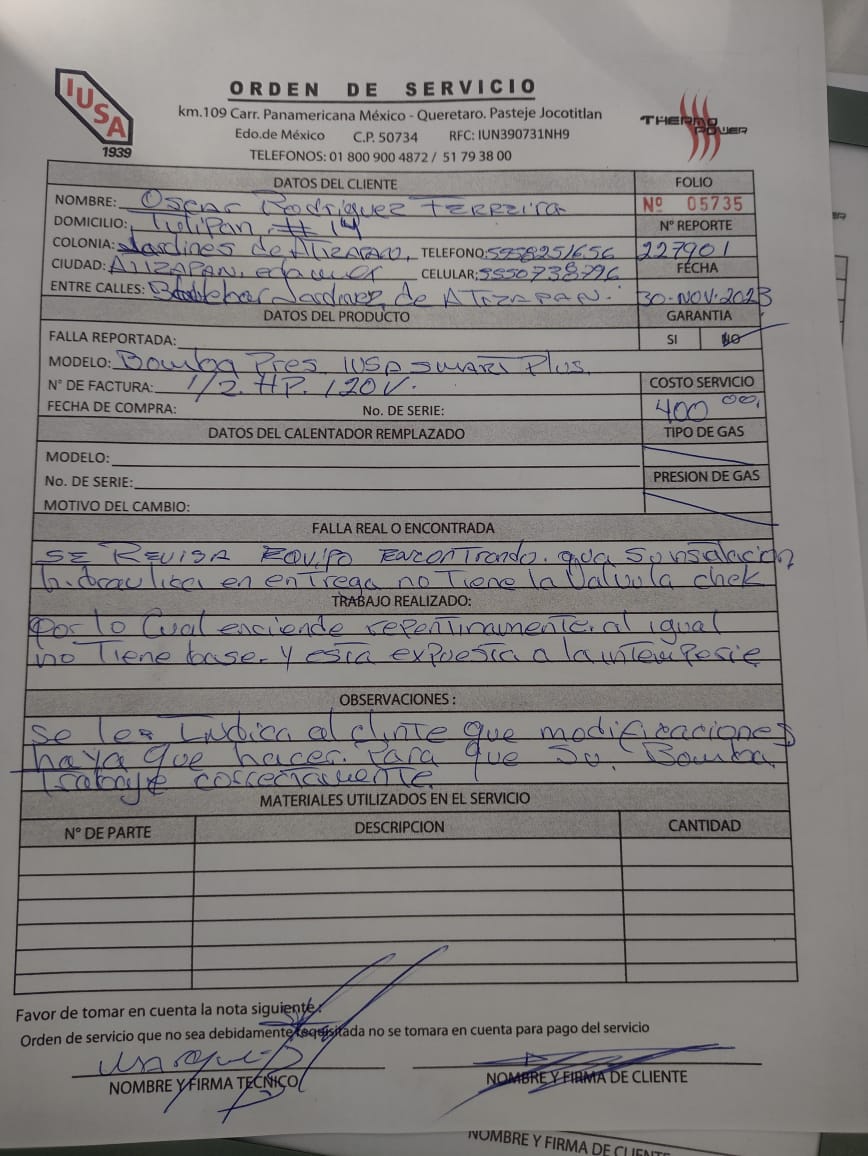 IUSA
1939
ORDEN DE SERVICIO
km.109 Carr. Panamericana México - Queretaro. Pasteje Jocotitlan
Edo.de México C.P. 50734 RFC: IUN390731NH9
TELEFONOS: 01 800 900 4872 / 51 79 38 00
THERMO POWER
DATOS DEL CLIENTE FOLIO
NOMBRE: Oscar Rodriguez Ferreira Nº 05735
DOMICILIO: Tulipan. # 14 Nº REPORTE
COLONIA: Jardines de Atizapan, TELEFONO: 5958251656 227901
CIUDAD: Atizapan, edo mex CELULAR: 5550738796 FECHA
ENTRE CALLES: Jardinez de ATIZAPAN. 30-NOV-2023
DATOS DEL PRODUCTO GARANTIA
FALLA REPORTADA: SI NO
MODELO: Bomba Pres. IUSA SMART Plus.
N° DE FACTURA: 1/2. HP. 120V. COSTO SERVICIO
FECHA DE COMPRA: No. DE SERIE: 400 00
DATOS DEL CALENTADOR REMPLAZADO TIPO DE GAS
MODELO:
No. DE SERIE: PRESION DE GAS
MOTIVO DEL CAMBIO:
FALLA REAL O ENCONTRADA
SE REVISA EQUIPO Encontrando. que su insalacion
hidraulica en entrega no Tiene la Valvula chek
TRABAJO REALIZADO:
por lo Cual enciende repentinamente. al igual
no Tiene base. y esta expuesta a la intemperie
OBSERVACIONES :
se les Indica al clinte que modificaciones
haya que hacer. Para que Su. Bomba
Trabaje correctamente.
MATERIALES UTILIZADOS EN EL SERVICIO
N° DE PARTE DESCRIPCION CANTIDAD
Favor de tomar en cuenta la nota siguiente:
Orden de servicio que no sea debidamente requisitada no se tomara en cuenta para pago del servicio
NOMBRE Y FIRMA TECNICO NOMBRE Y FIRMA DE CLIENTE
NOMBRE Y FIRMA DE CLIENTE